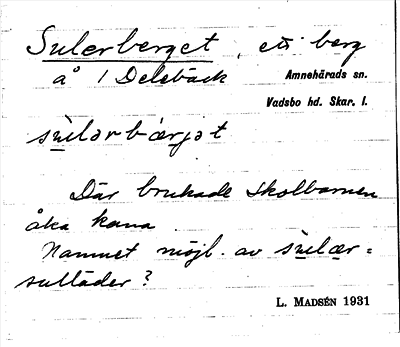 Sulerberget, ett berg
å 1 Delebäck
Amnehärads sn.
Vadsbo hd. Skar. l.
sulərbærjət
Där brukade skolbarnen
åka kana
Namnet möjl. av sulær =
sulläder?
L. MADSÉN 1931